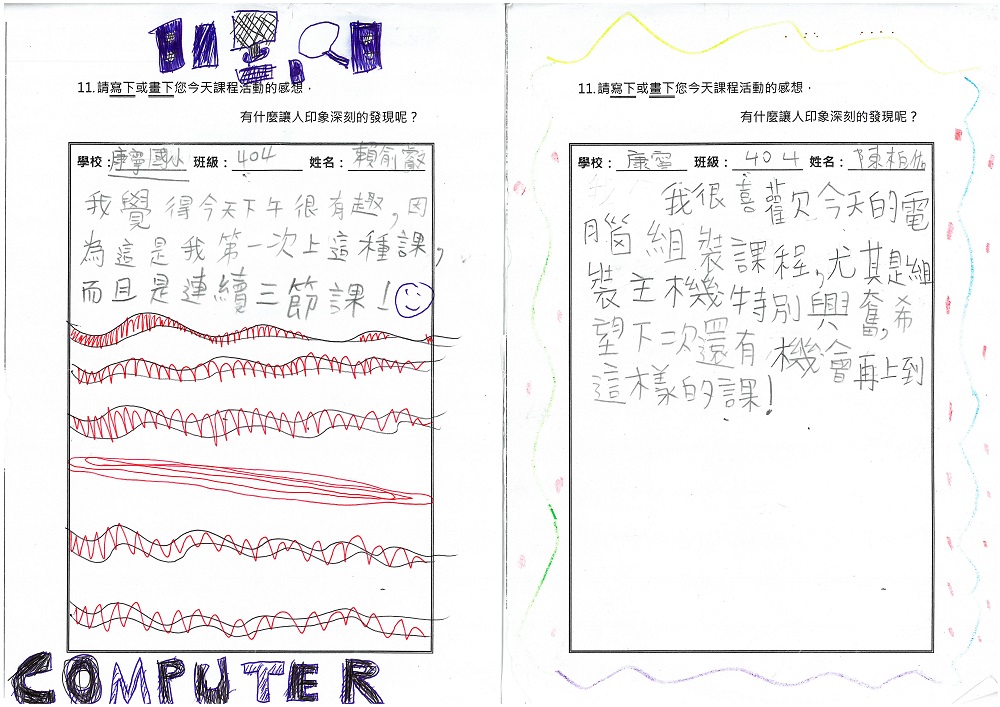 11.請寫下或畫下您今天課程活動的感想，
有什麼讓人印象深刻的發現呢？
學校：康寧國小 班級：404 姓名：賴俞叡
我覺得今天下午很有趣，因
為這是我第一次上這種課，
而且是連續三節課！
COMPUTER
11.請寫下或畫下您今天課程活動的感想，
有什麼讓人印象深刻的發現呢？
學校：康寧 班級：404 姓名：陳柏佑
我很喜歡今天的電
腦組裝課程，尤其是組
裝主機特別興奮，希
望下次還有機會再上到
這樣的課！